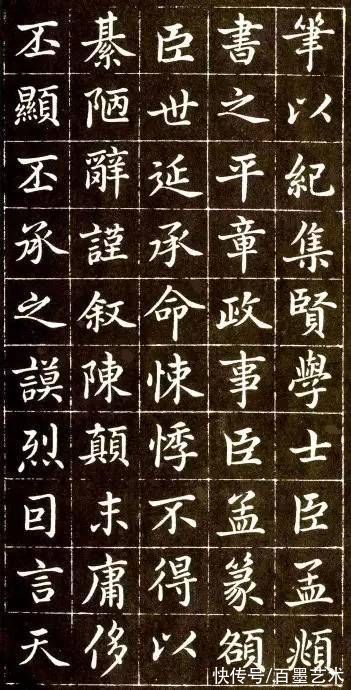 筆以紀集賢學士臣孟頫
書之平章政事臣孟篆額
臣世延承命悚悸不得以
綦陋辭謹叙陳顛末庸侈
丕顯丕承之謨烈回言天
快传号/百墨艺术